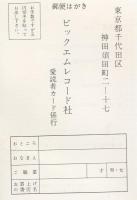 郵便はがき
お手数ですが
切手をお貼り
下さい。
東京都千代田区
神田須田町二ー十七
ビックエムレコード社
愛読者カード係行
おところ
おなまえ
ご職業
才
男・女
お買上げ